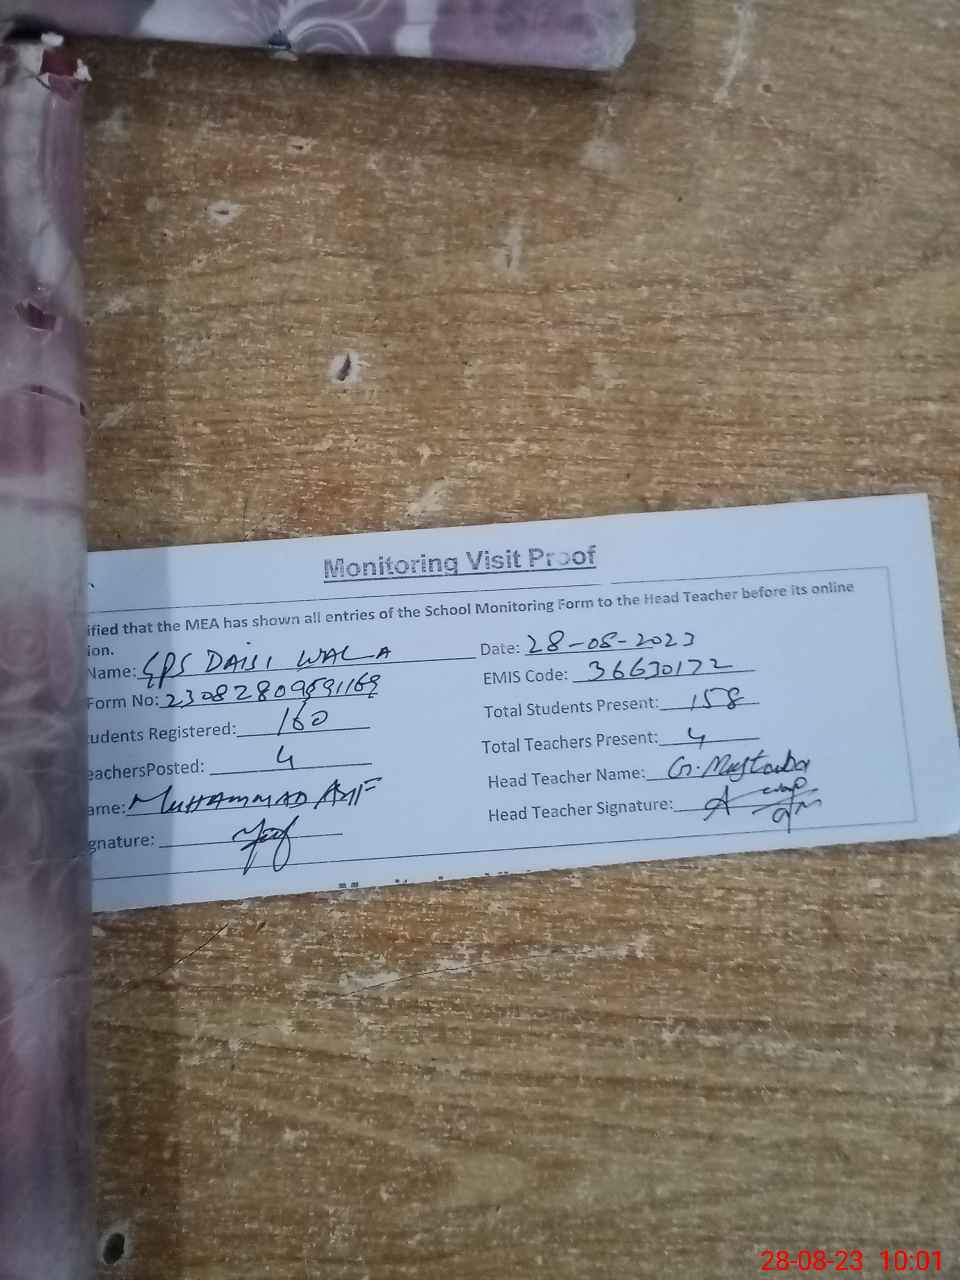 Monitoring Visit Proof
ified that the MEA has shown all entries of the School Monitoring Form to the Head Teacher before its online
ion.
Name: GPS DAISI WALA Date: 28-08-2023
Form No: 23082809891169 EMIS Code: 36630172
udents Registered: 160 Total Students Present: 158
eachersPosted: 4 Total Teachers Present: 4
ame: MUHAMMAD ASIF Head Teacher Name: G. Mustaba
gnature: Head Teacher Signature:
28-08-23 10:01